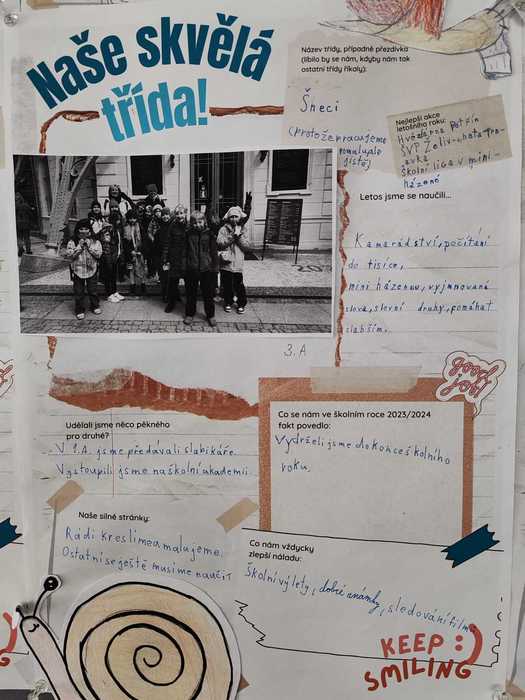 Naše skvělá
třída!
Název třídy, případně přezdívka
(líbilo by se nám, kdyby nám tak
ostatní třídy říkaly):
Šneci
(protože pracujeme
pomalu, ale
jistě)
Nejlepší akce
letošního roku:
Hvězdárna Petřín
ŠVP Želiv-chata Pro-
avka
Školní liga v mini-
házené
Letos jsme se naučili...
Kamarádství, počítání
do tisíce,
mini házenou, vyjmenovaná
slova, slovní druhy, pomáhat
slabším.
3. A
good
job!
Udělali jsme něco pěkného
pro druhé?
V 1.A. jsme předávali slabikáře.
Vystoupili jsme na školní akademii.
Co se nám ve školním roce 2023/2024
fakt povedlo:
Vydrželi jsme do konce školního
roku.
Naše silné stránky:
Rádi kreslíme a malujeme.
Ostatní se ještě musíme naučit
Co nám vždycky
zlepší náladu:
Školní výlety, dobré známky, sledování filmů
KEEP :)
SMILING